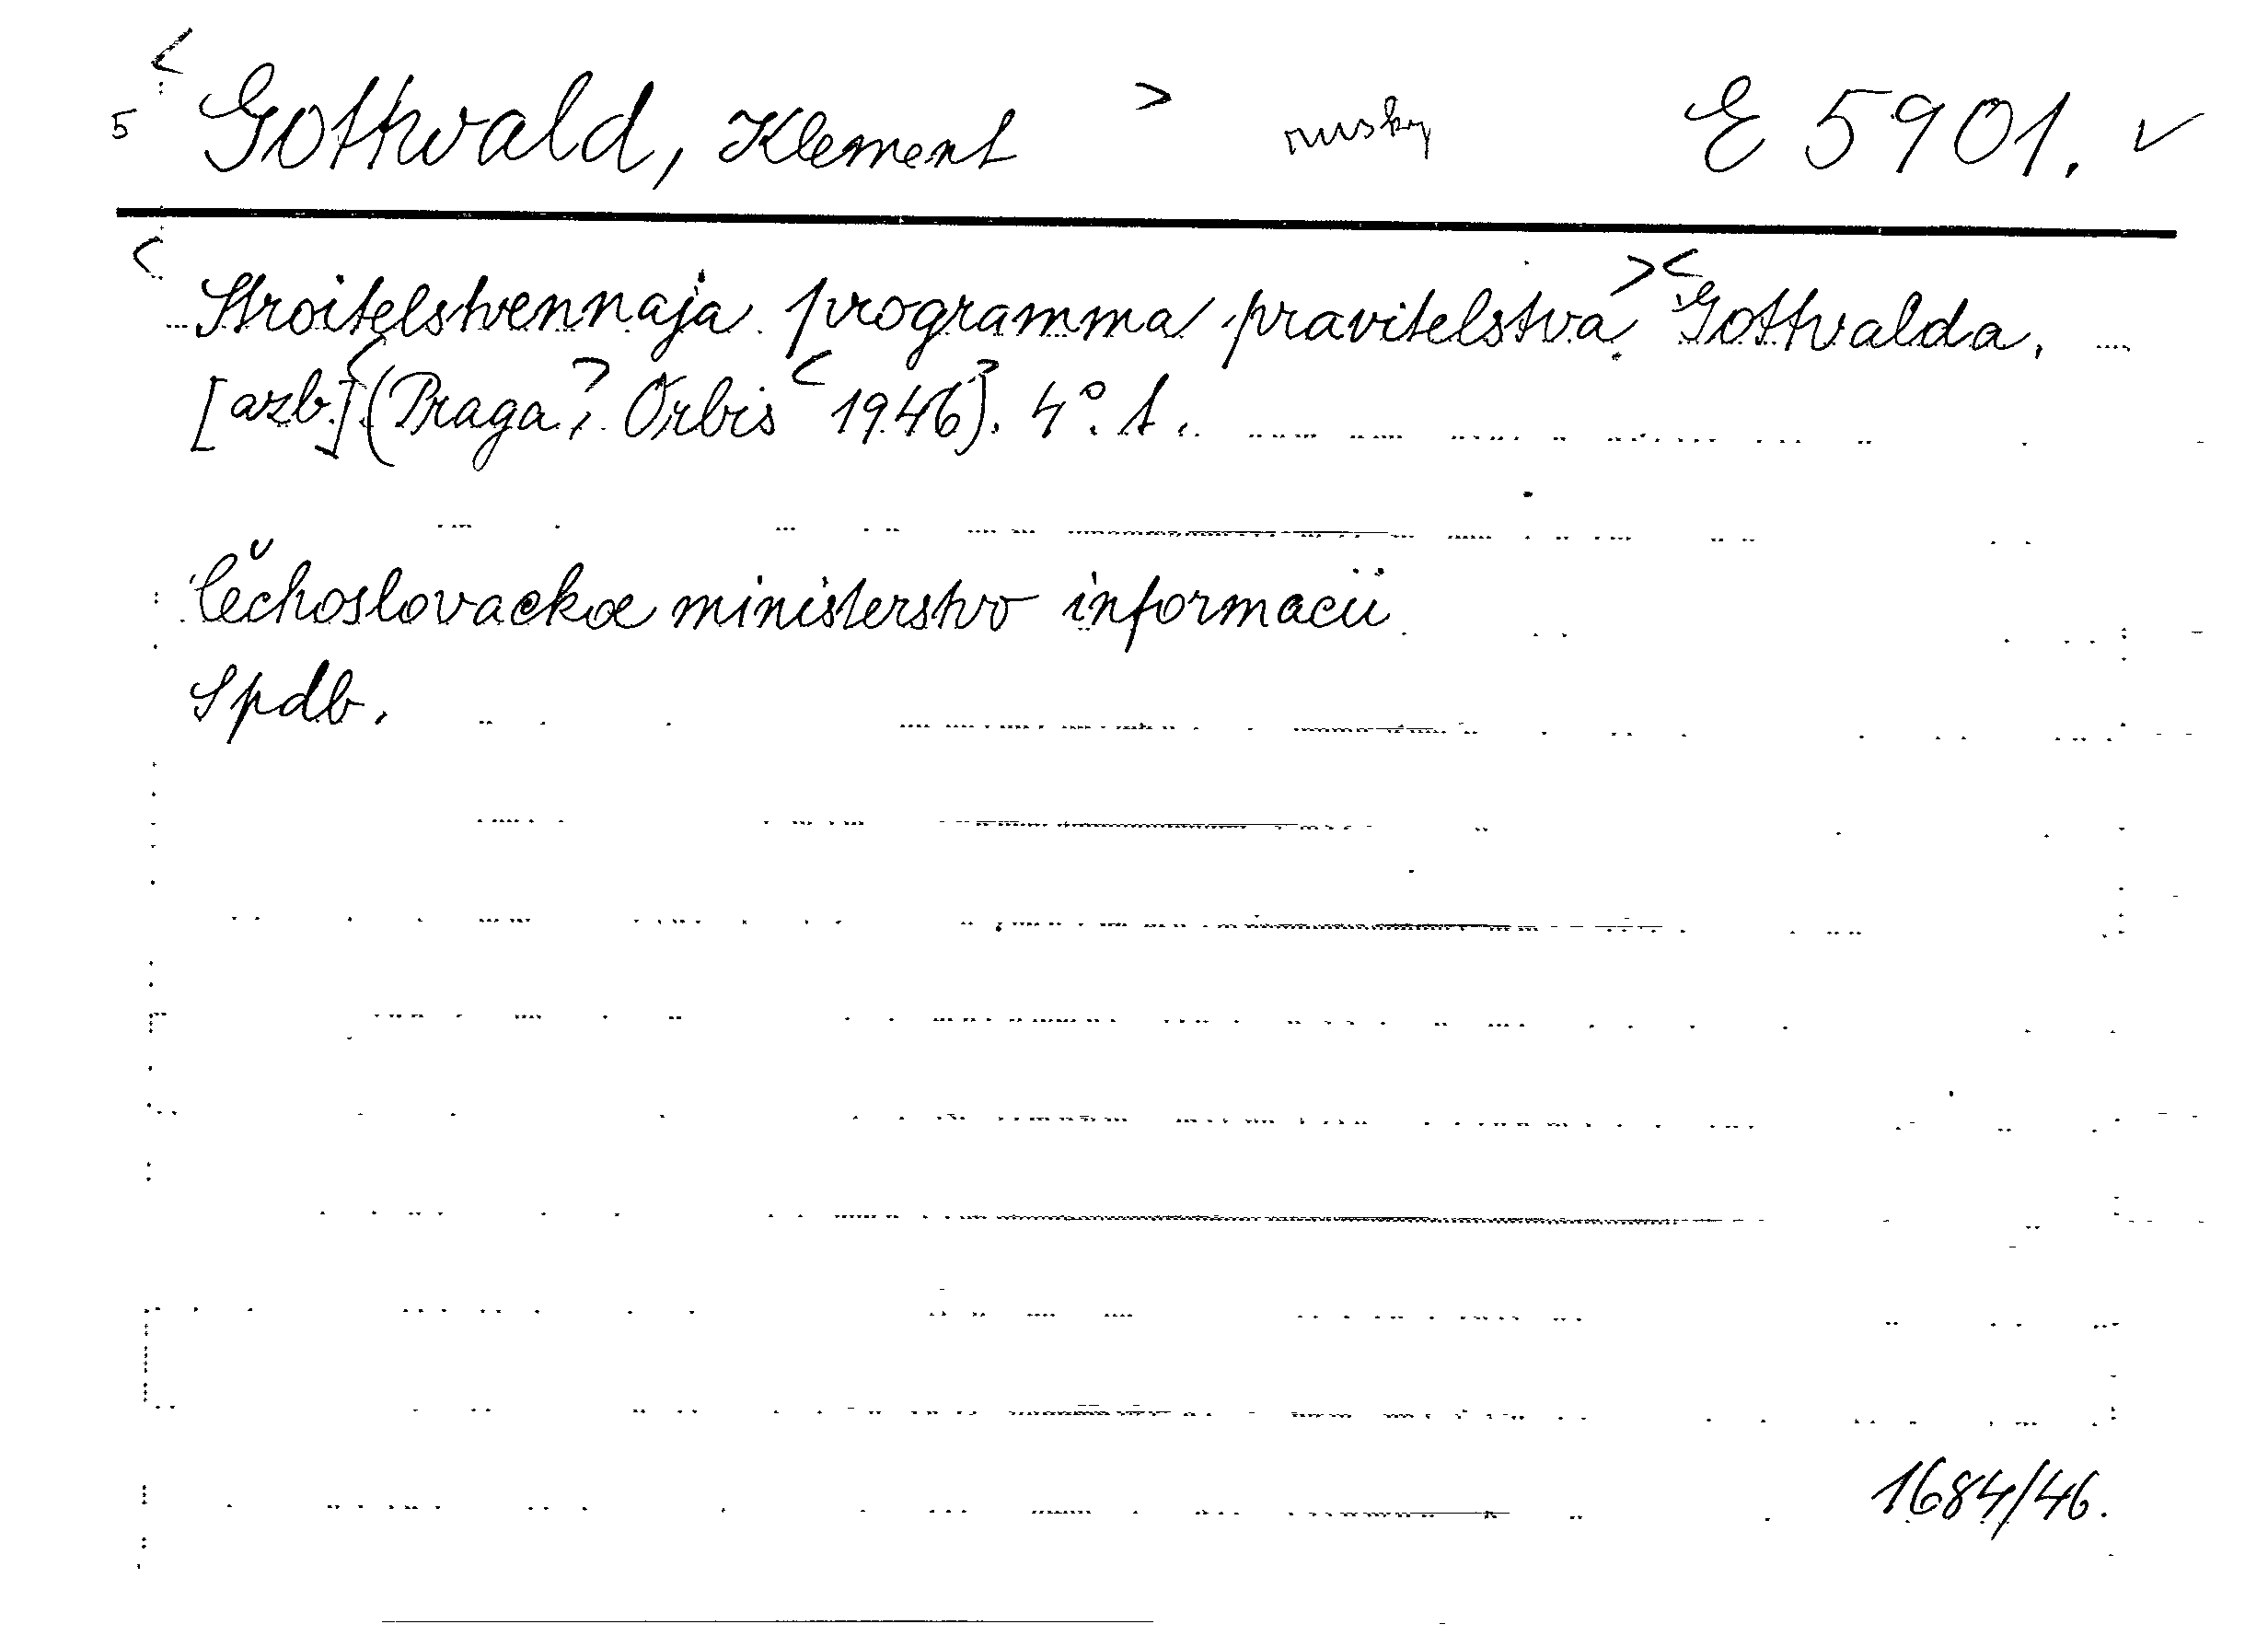 5 <Gottwald, Klement> rusky E 5901. ✓
<Stroitelstvennaja programma pravitelstva.> <Gottvalda.
[azb.] <(Praga>, Orbis <1946>). 4°. A.
Čechoslovackoe ministerstvo informacii
Spdb.
1684/46.